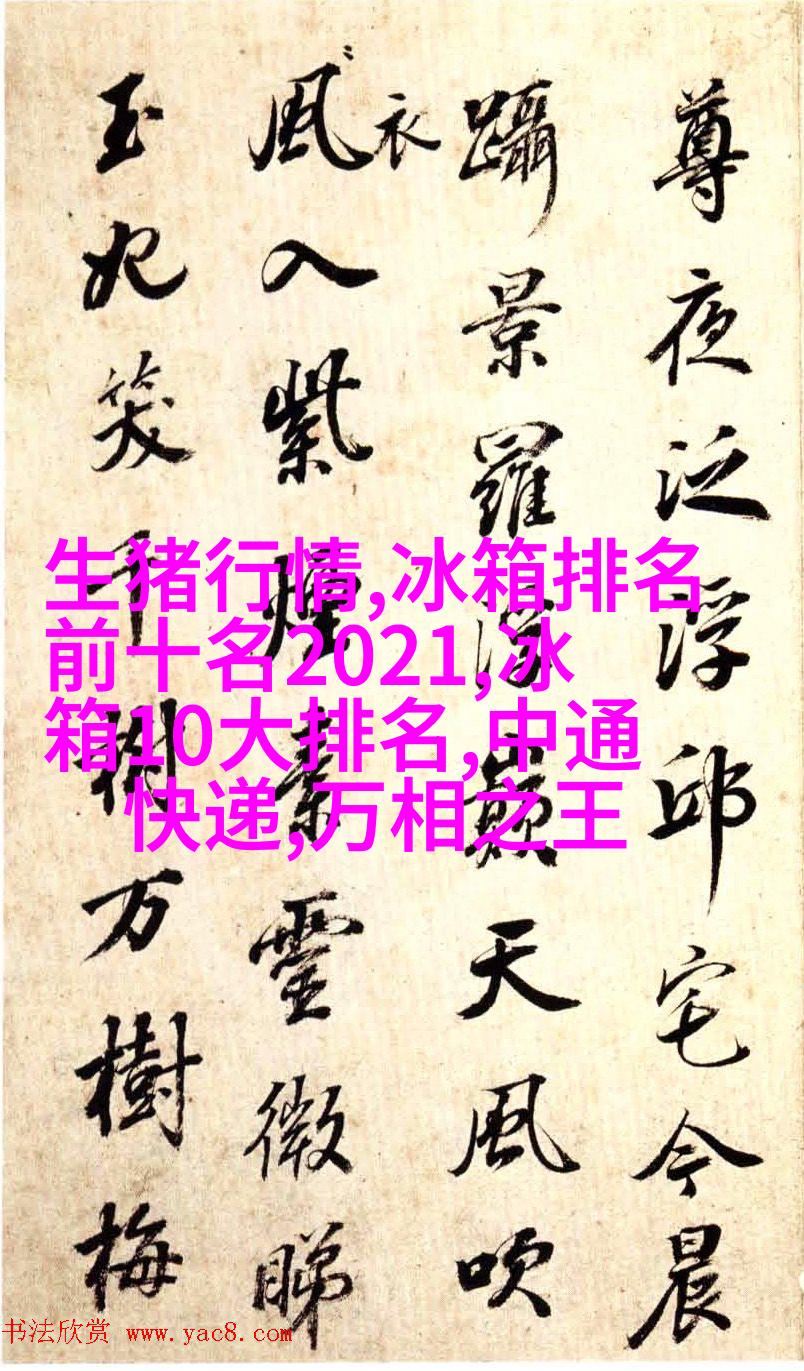 尊夜泛浮邱宅今晨
躡景羅浮巔天風吹
衣
風入紫煙素靈微睇
玉妃笑千樹万樹梅
生猪行情,冰箱排名
前十名2021,冰
箱10大排名,中通
快递,万相之王
书法欣赏 www.yac8.com